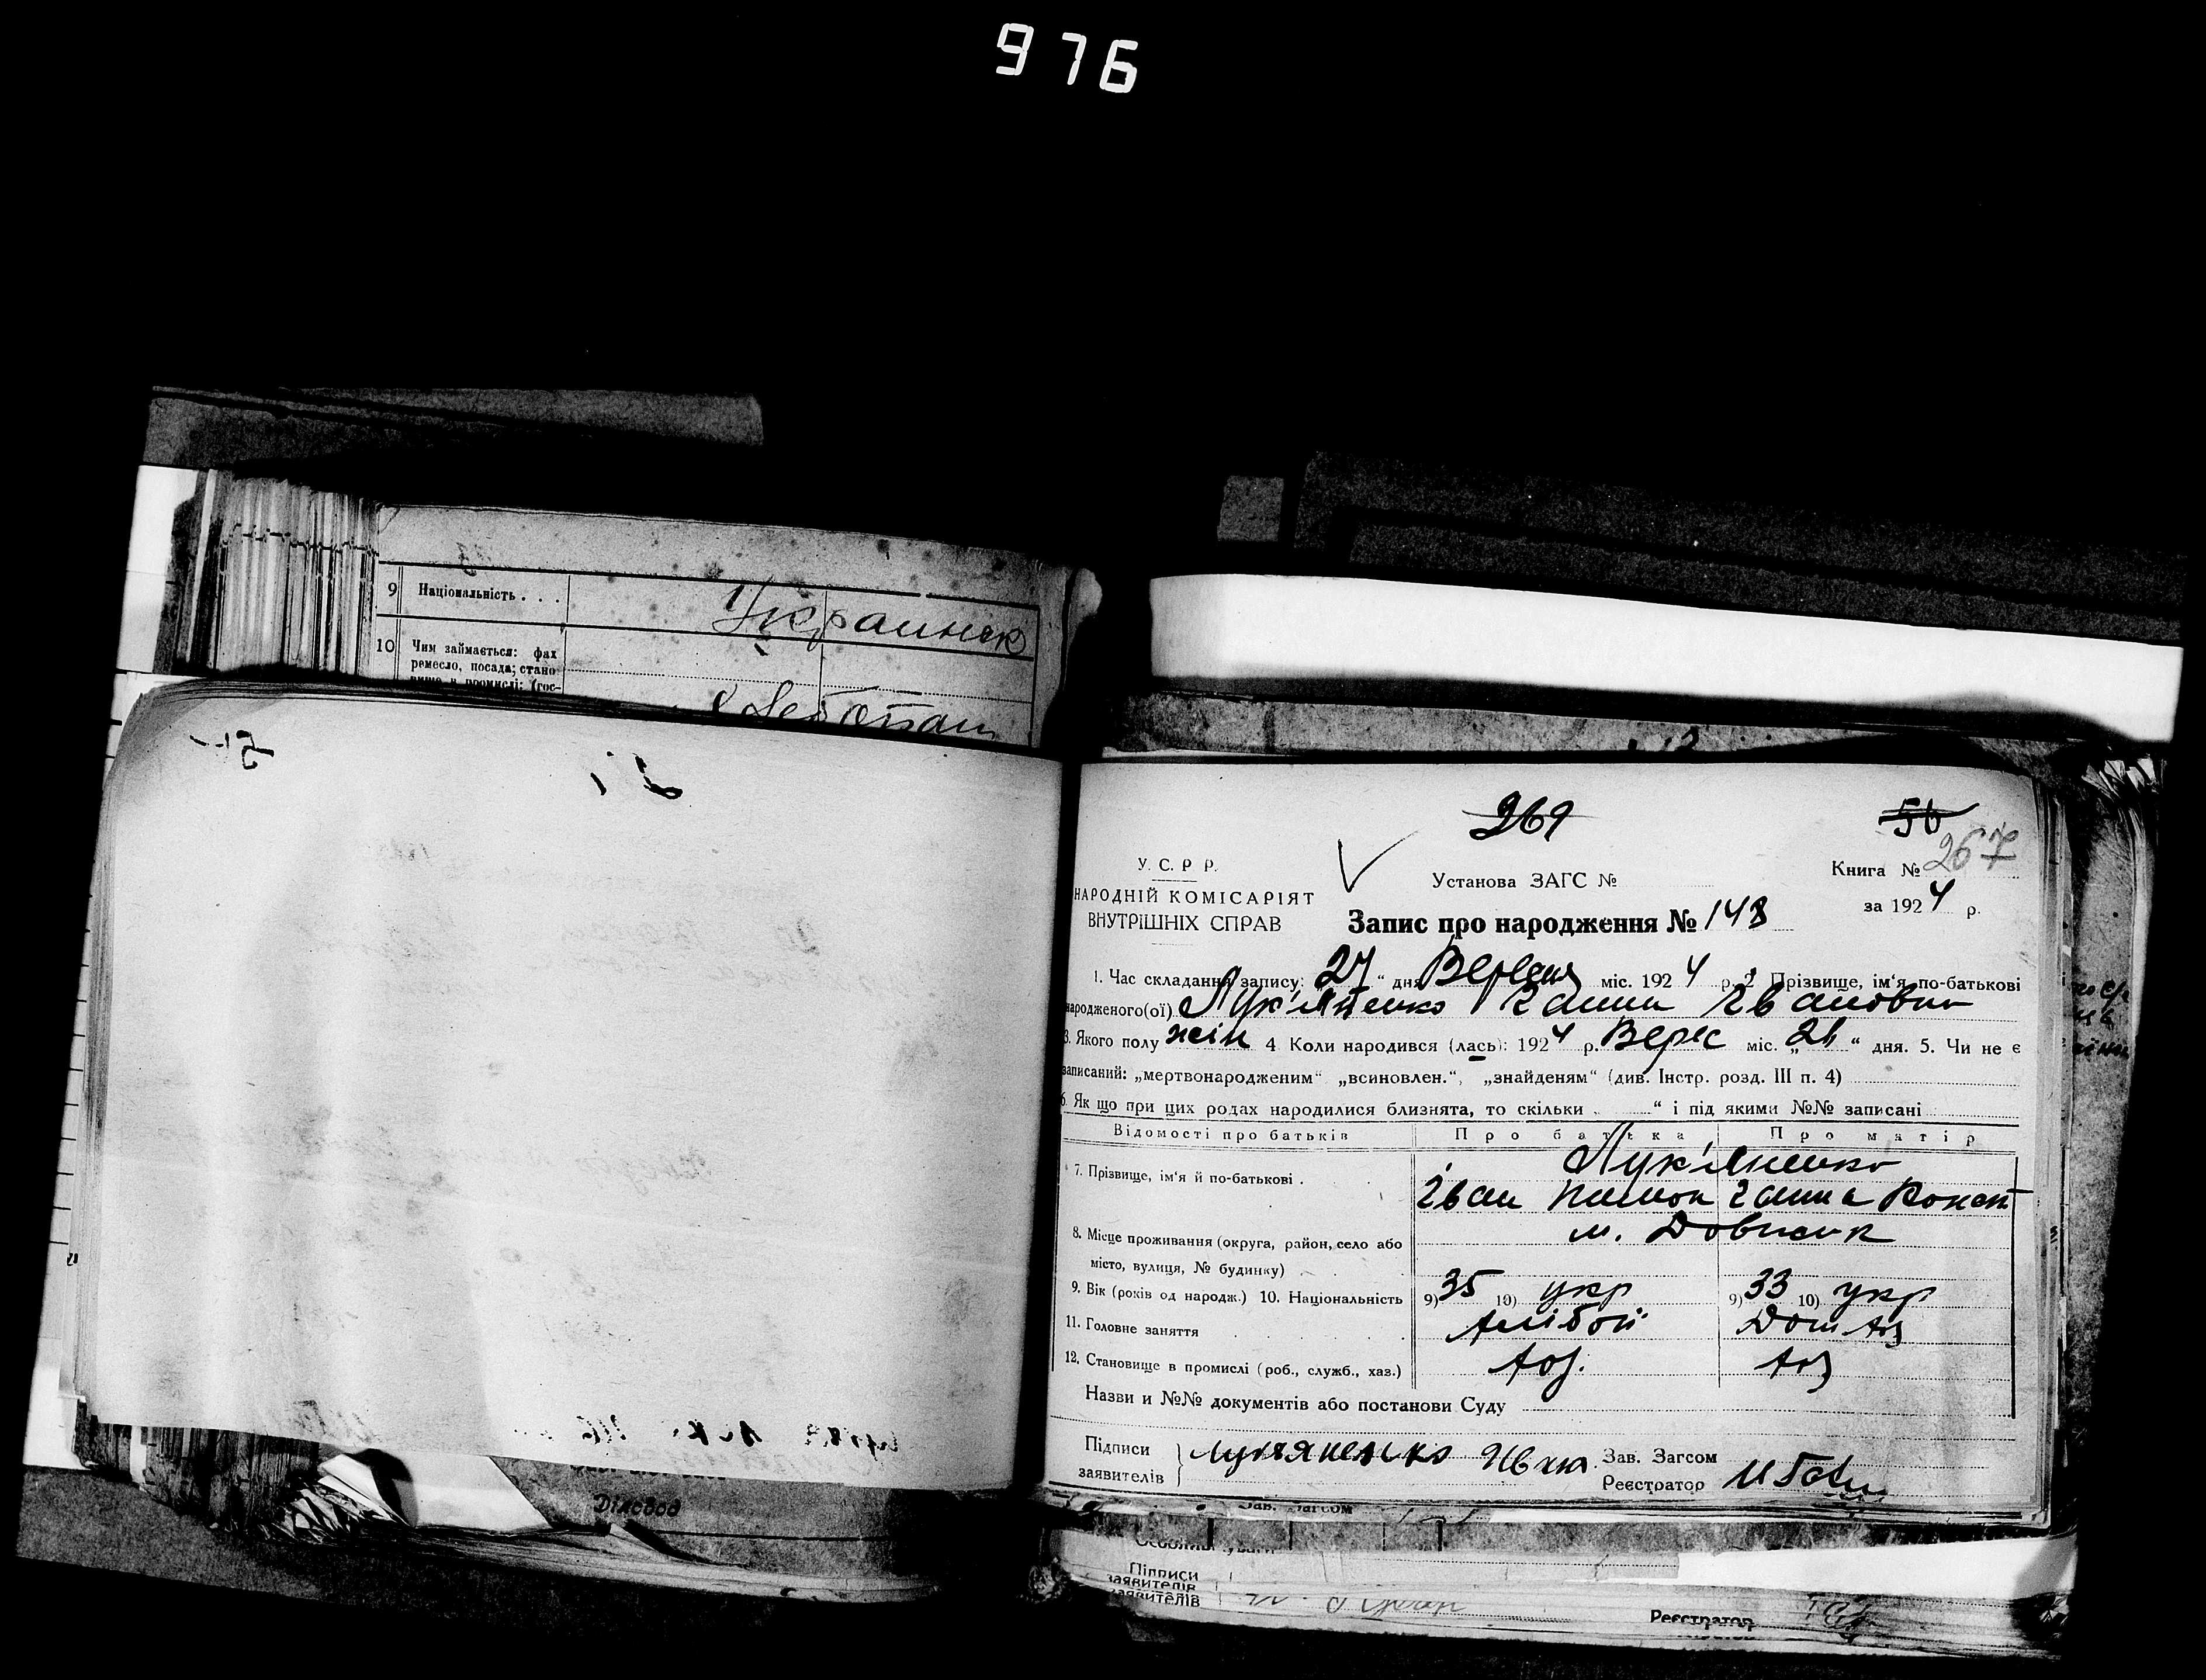 976
9 Національність . . .
Украинск
10 Чим займається: фах
ремесло, посада; стано-
Хлебопаш
Діловод
269
56
267
У. С. Р. Р.
НАРОДНІЙ КОМІСАРІЯТ
ВНУТРІШНІХ СПРАВ
Установа ЗАГС №
Книга №
за 1924 р.
Запис про народження № 148
1. Час складання запису: „27“ дня Вересня міс. 1924 р. 2 Прізвище, ім'я, по-батькові
народженого(ої) Лук'яненко Ганна Івановна
3. Якого полу жін 4 Коли народився (лась): 1924 р. Верес міс. „21“ дня. 5. Чи не є
записаний: „мертвонародженим“ „всиновлен.“, „знайденям“ (див. Інстр. розд. III п. 4)
6. Як що при цих родах народилися близнята, то скільки „ “ і під якими №№ записані
Відомості про батьків Про батька Про матір
7. Прізвище, ім'я й по-батькові . Лук'яненко
Іван Ганна Конст
8. Місце проживання (округа, район, село або м. Довбиш
місто, вулиця, № будинку)
9. Вік (років од народж.) 10. Національність 9) 35 10) укр 9) 33 10) укр
11. Головне заняття Дом хоз
12. Становище в промислі (роб., служб., хаз.) хоз. хоз
Назви и №№ документів або постанови Суду
Підписи
заявителів Лукяненко Иван
Зав. Загсом
Реєстратор
Зав. Загсом
Підписи
заявителів
заявителів
Реєстратор